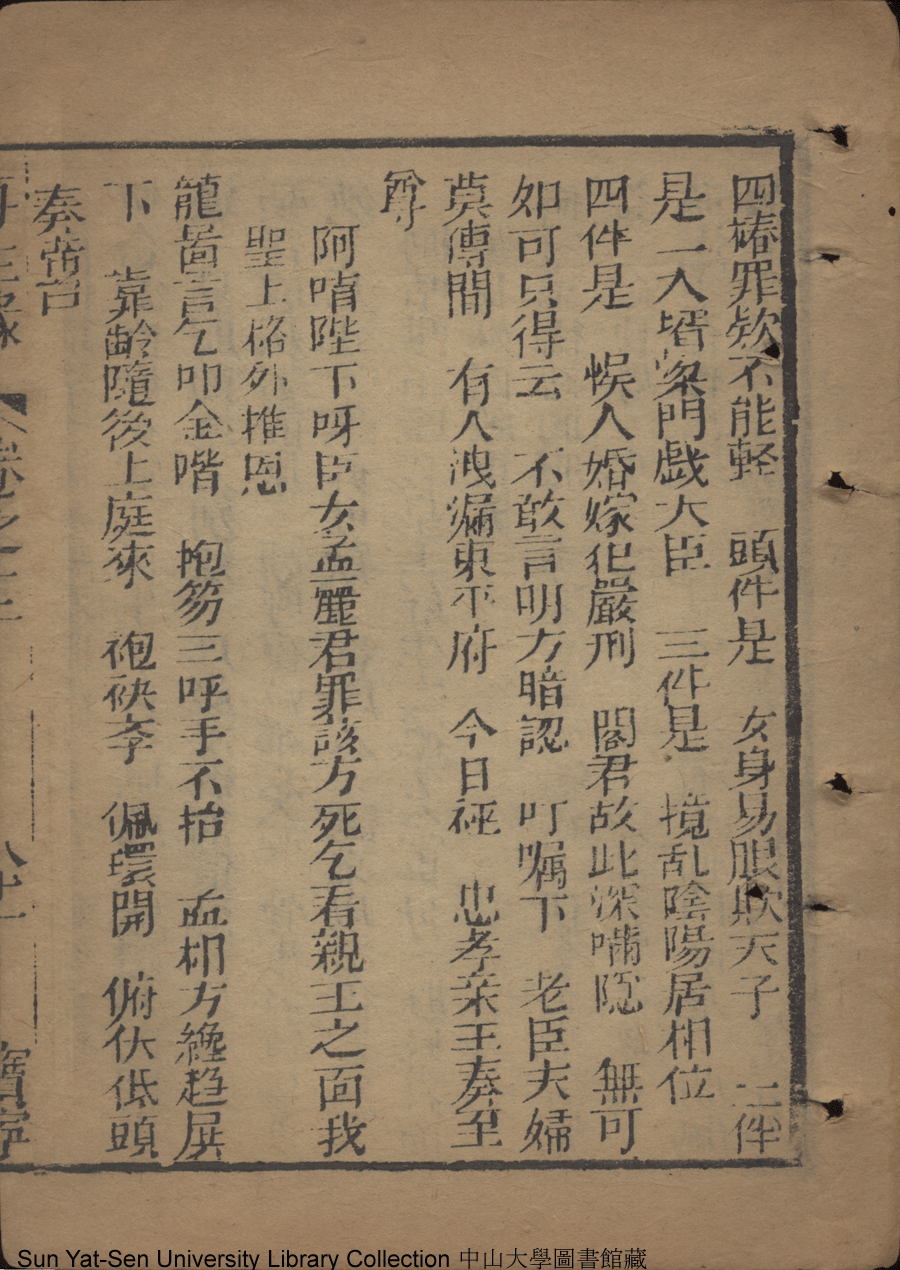 四樁罪欵不能輕　頭件是　女身易服欺天子　二件
是一入壻䅁門戯大臣　三件是　攪乱陰陽居相位
四件是　悞人婚嫁犯嚴刑　閤君故此深嘱隐　無可
如可只得云　不敢言明方暗認　叮嘱下　老臣夫婦
莫傳聞　有人洩漏東平府　今日砸　忠孝亲王奏至
尊
阿唷陛下呀臣女孟麗君罪該方死乞看親王之面我
聖上格外推恩
龍啚言乞叩金階　抱笏三呼手不抬　孟相方纔趋屏
下　靠齡隨後上庭來　袍袂斉　佩環開　俯伏低頭
奏帝台
再生縁　卷之十二　八十一　寳寧
Sun Yat-Sen University Library Collection 中山大學圖書館藏